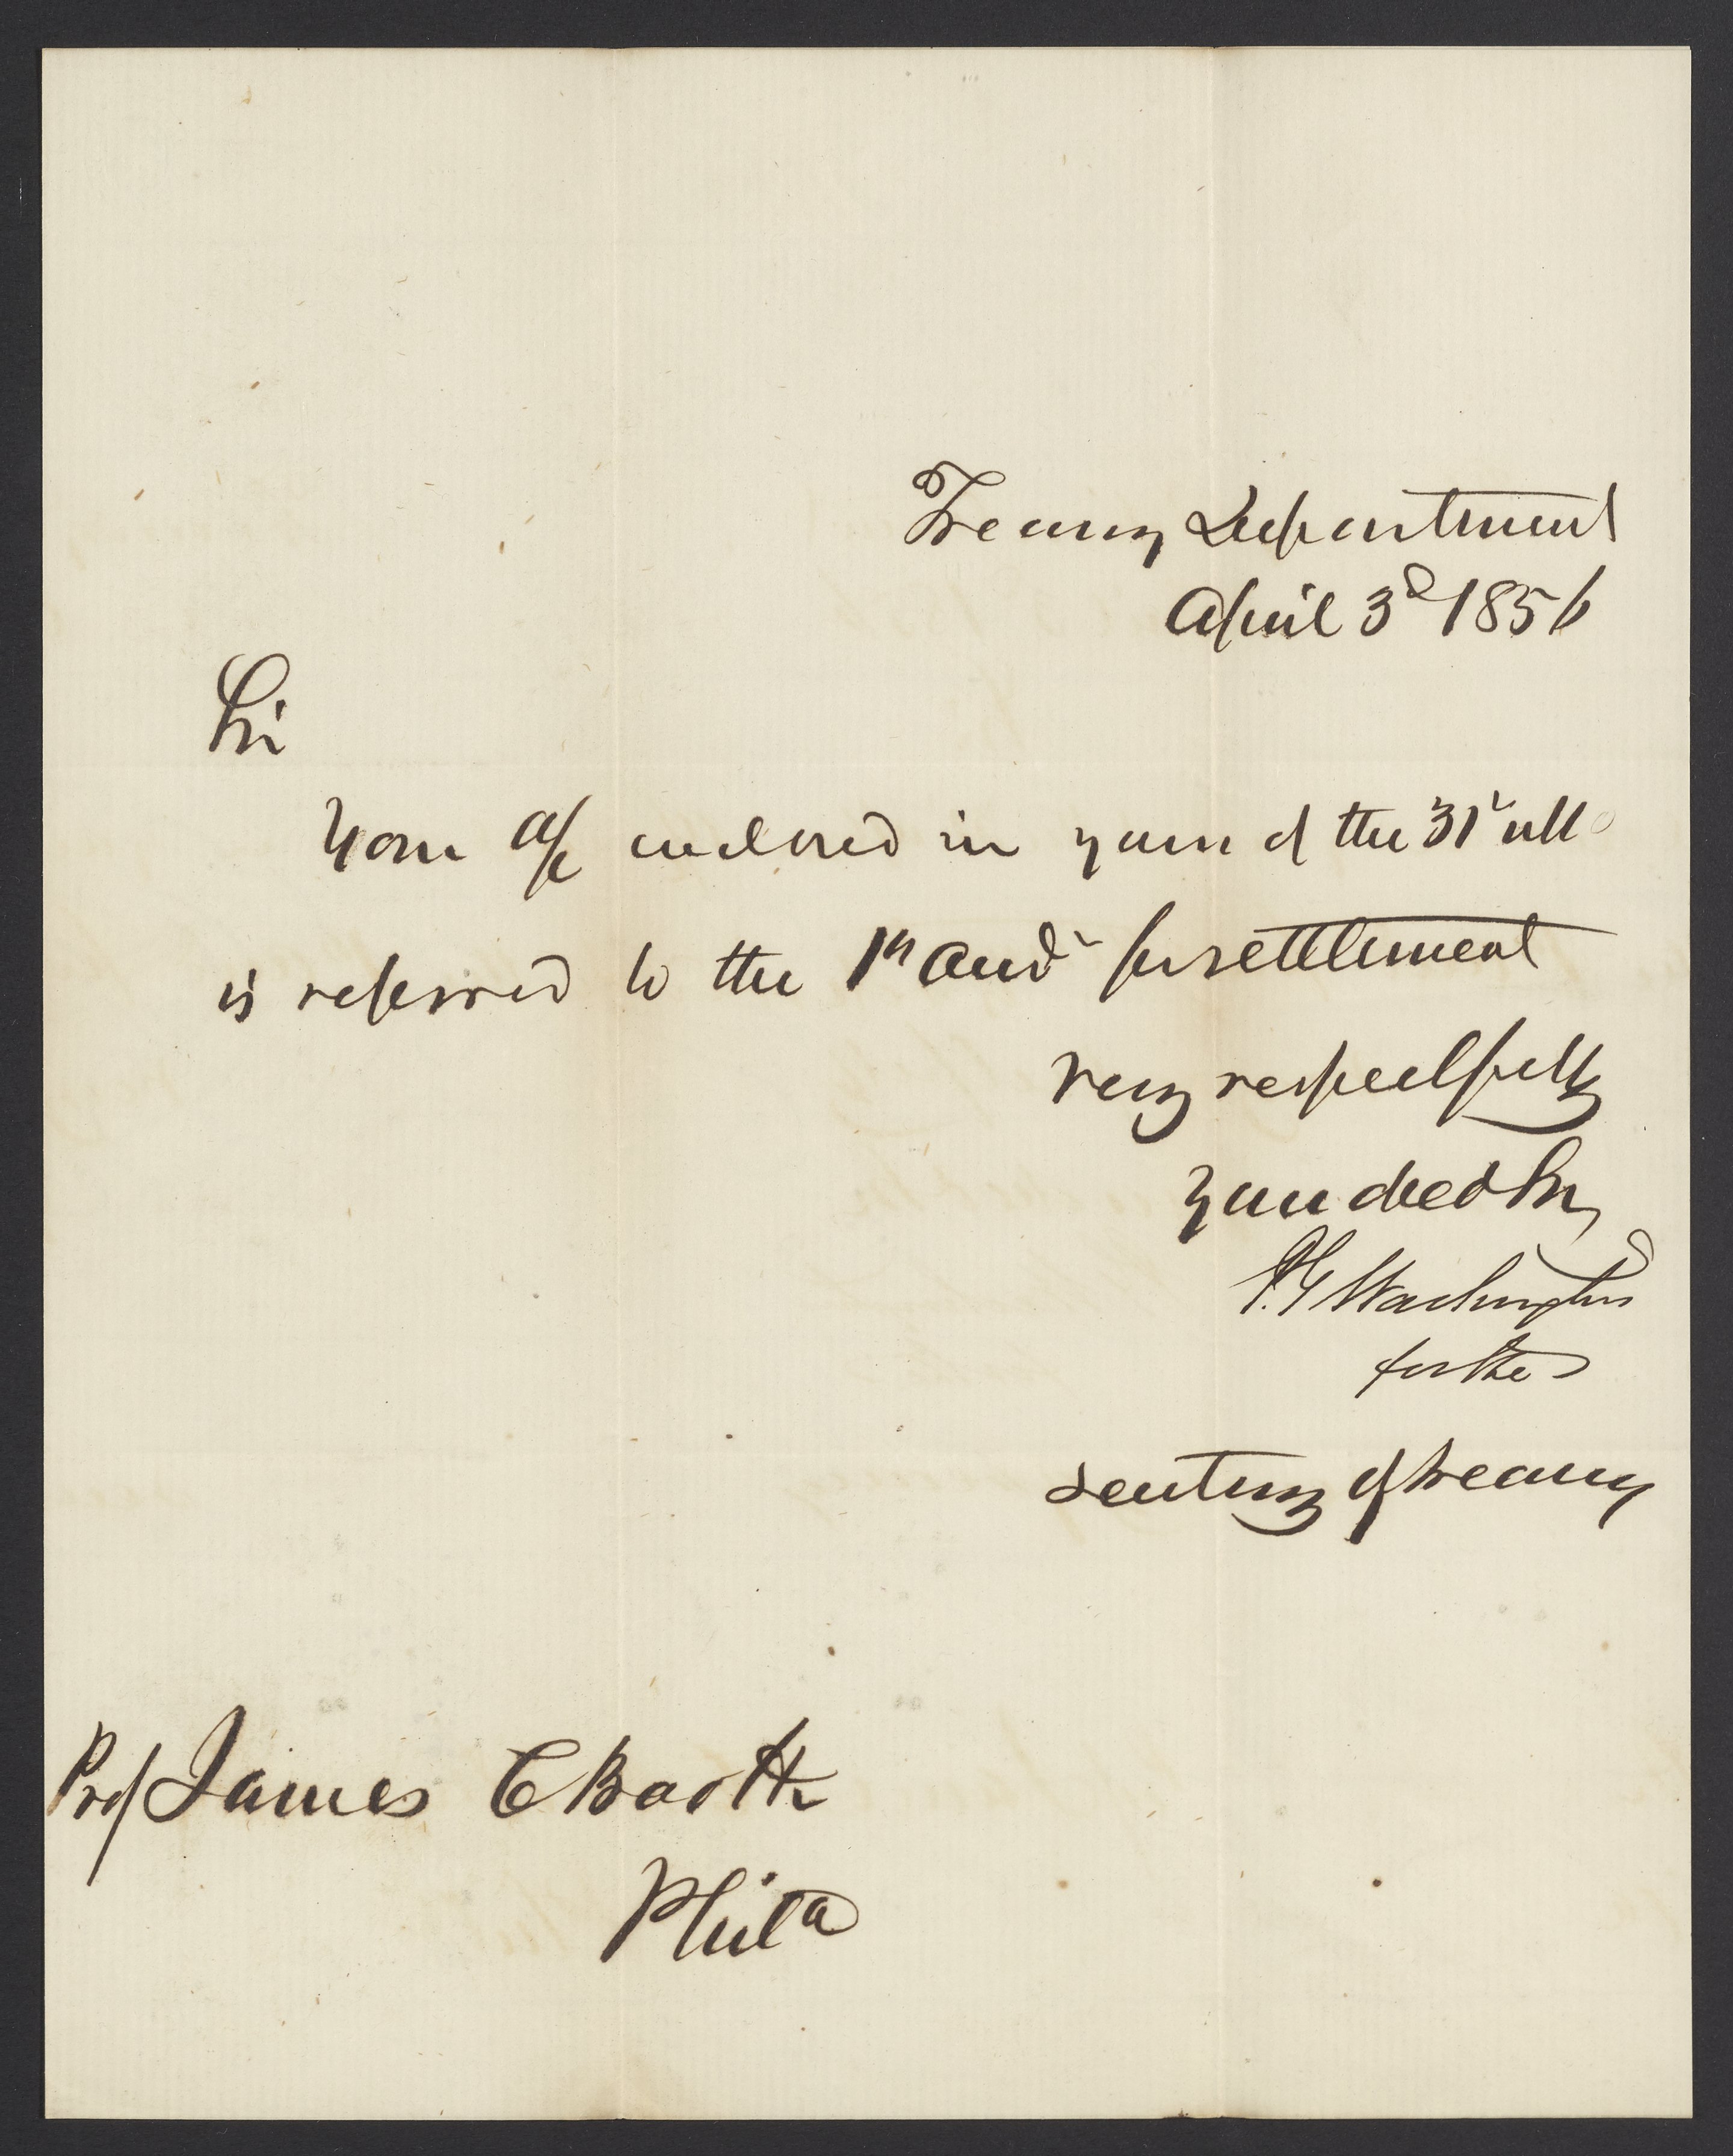 Treasury Department
April 3d 1856
Sir
Your a/c enclosed in yours of the 31t ulto
is referred to the 1st Audr for settlement
Very respectfully
Your obed Sr
P. G Washington
for the
Secretary of Treasury
Prof James C Booth
Phila